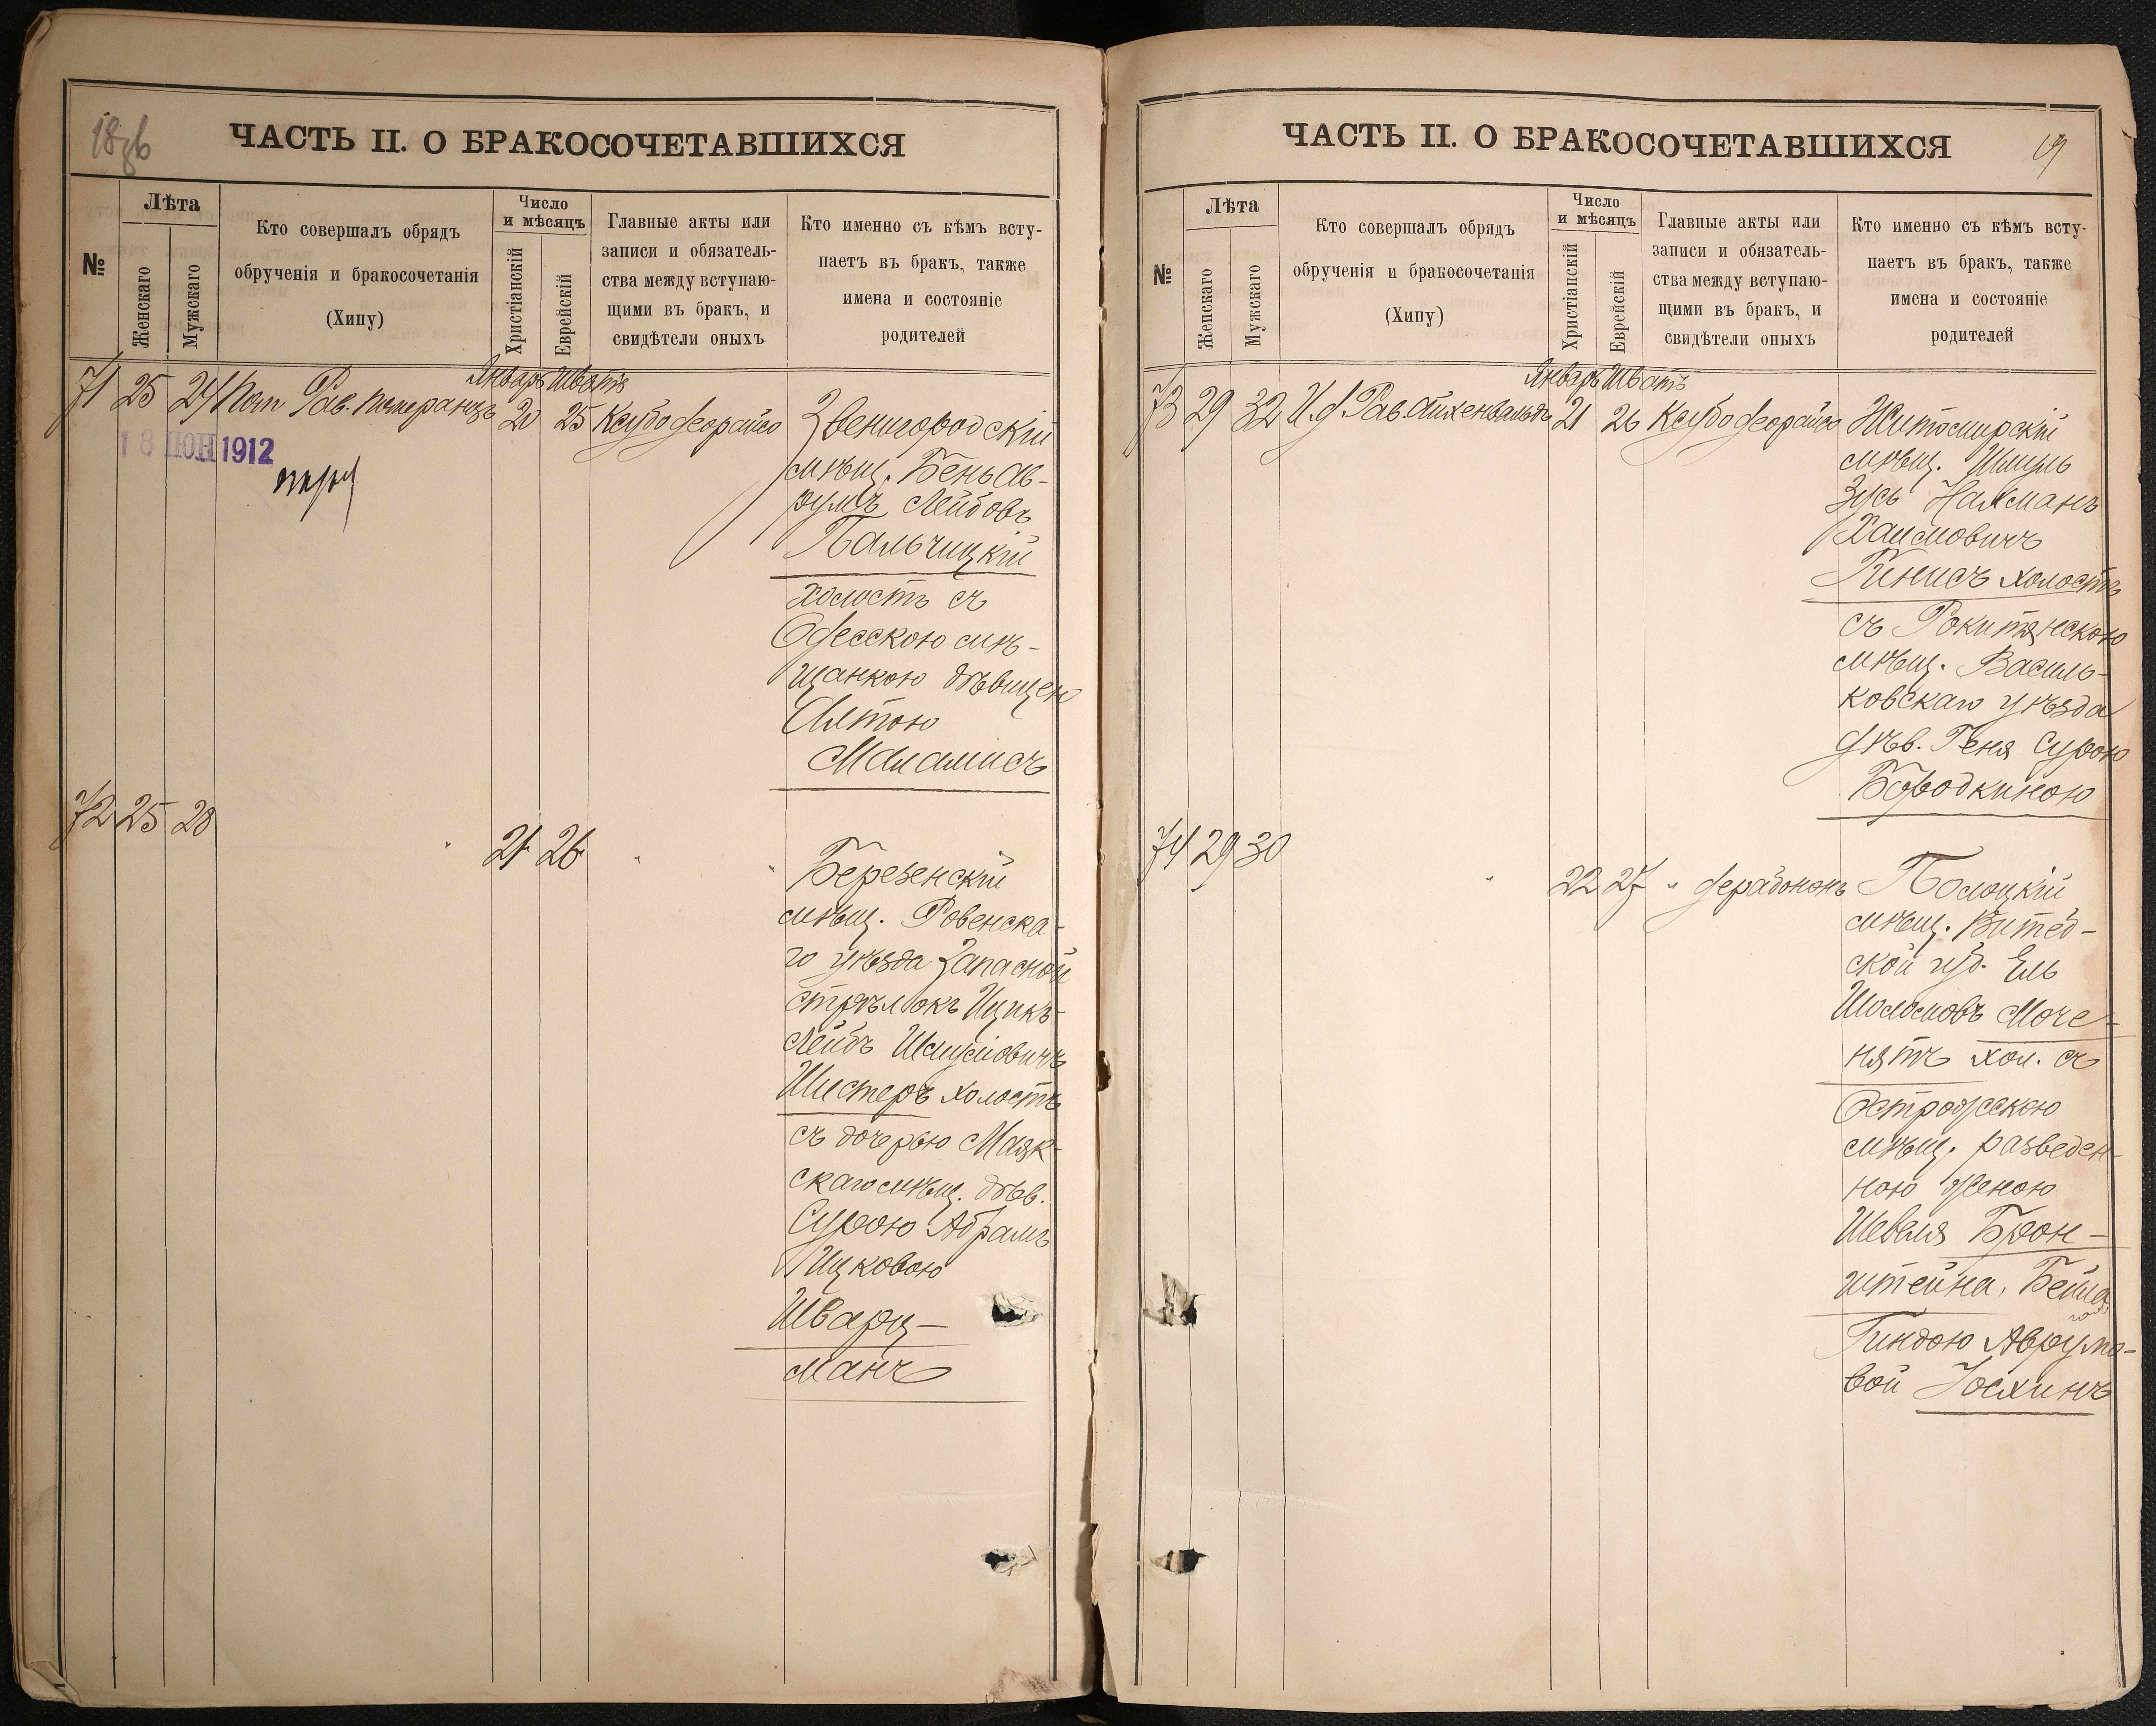 18об
ЧАСТЬ II. О БРАКОСОЧЕТАВШИХСЯ
№
Лѣта
Женскаго
Мужскаго
Кто совершалъ обрядъ
обрученія и бракосочетанія
(Хипу)
Число
и мѣсяцъ
Христіанскій
Еврейскій
Главные акты или
записи и обязатель-
ства между вступаю-
щими въ бракъ, и
свидѣтели оныхъ
Кто именно съ кѣмъ всту-
паетъ въ бракъ, также
имена и состояніе
родителей
Январь Шватъ
71 25 24 Пом Рав. Померанцъ 20 25 Ксубо деорайсо
18 ІЮН 1912
Звенигородскій
мѣщ. Бень Ав-
румъ Лейбовъ
Пальчицкій
холостъ съ
Одесскою мѣ-
щанкою дѣвицею
Маламисъ
72 25 28 " 21 26 " "
Березенскій
мѣщ. Ровенска-
го уѣзда запасной
стрѣлокъ Ицикъ-
Лейбъ Шмулiовичъ
Шистеръ холостъ
съ дочерью Маяк-
скаго мѣщ. дѣв.
Сурою Абрамъ
Ицковою
Шварц-
манъ
ЧАСТЬ II. О БРАКОСОЧЕТАВШИХСЯ
19
№
Лѣта
Женскаго
Мужскаго
Кто совершалъ обрядъ
обрученія и бракосочетанія
(Хипу)
Число
и мѣсяцъ
Христіанскій
Еврейскій
Главные акты или
записи и обязатель-
ства между вступаю-
щими въ бракъ, и
свидѣтели оныхъ
Кто именно съ кѣмъ всту-
паетъ въ бракъ, также
имена и состояніе
родителей
Январь Шватъ
73 29 32 И. д. Рав. Айхенвальдъ 21 26 Ксубо деорайсо
Житомирскій
мѣщ. Шмуль
Зусь Нахманъ
Хаимовичъ
Гинисъ холостъ
съ Рокитянскою
мѣщ. Василь-
ковскаго уѣзда
дѣв. Геня Сурою
Бородкиною
74 29 30 " 22 27 " дерабононъ
Полоцкій
мѣщ. Витеб-
ской губ. Ель
Шоломовъ Моче-
нятъ хол. съ
Острожскою
мѣщ. разведен-
ною женою
Шевеля Брон-
штейна, Бейла
Гиндою Аврумо-
вой Іосхинъ